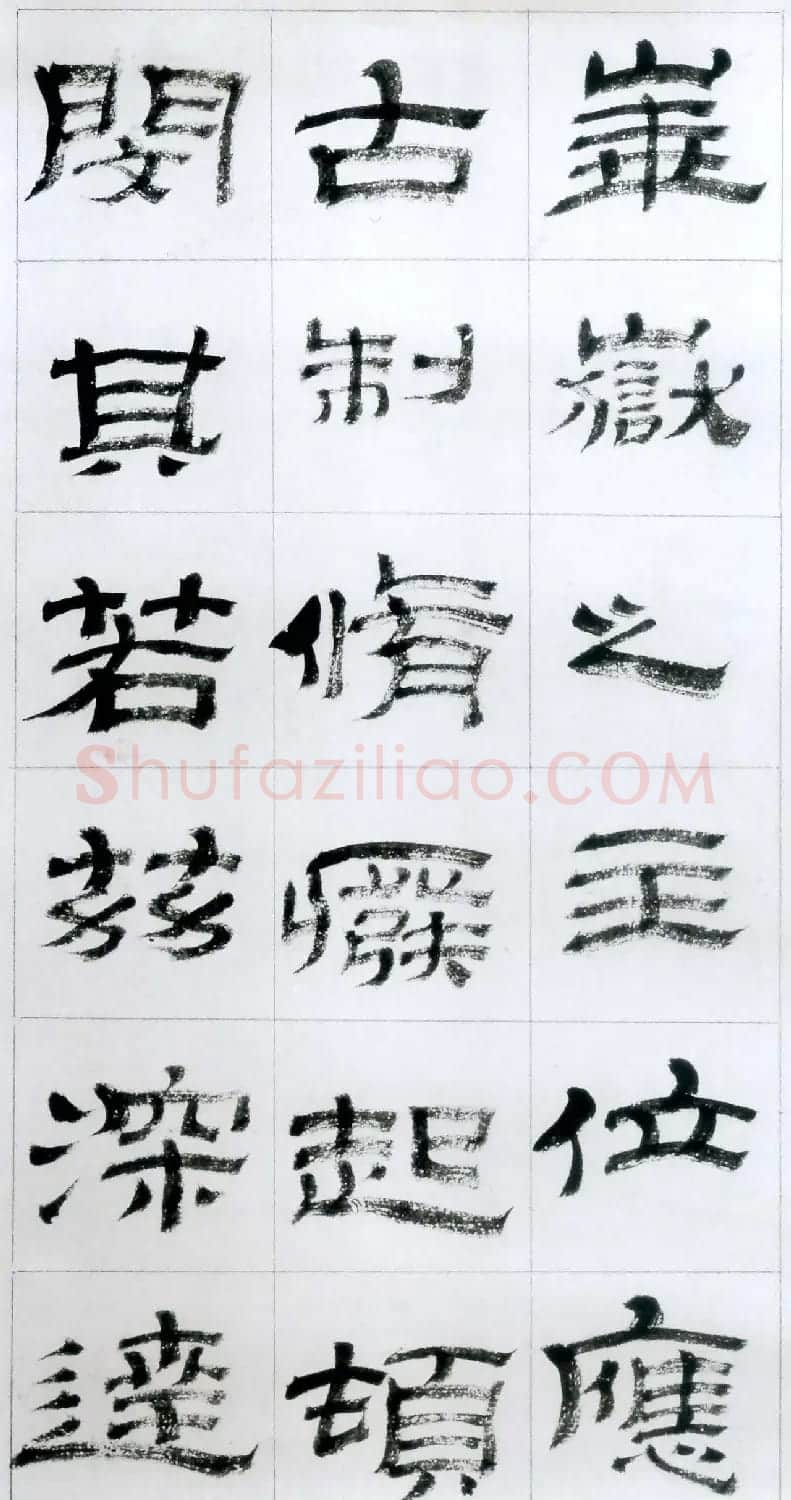 崋嶽之主位應
古制脩癈起頓
閔其若玆深達
Shufaziliao.COM